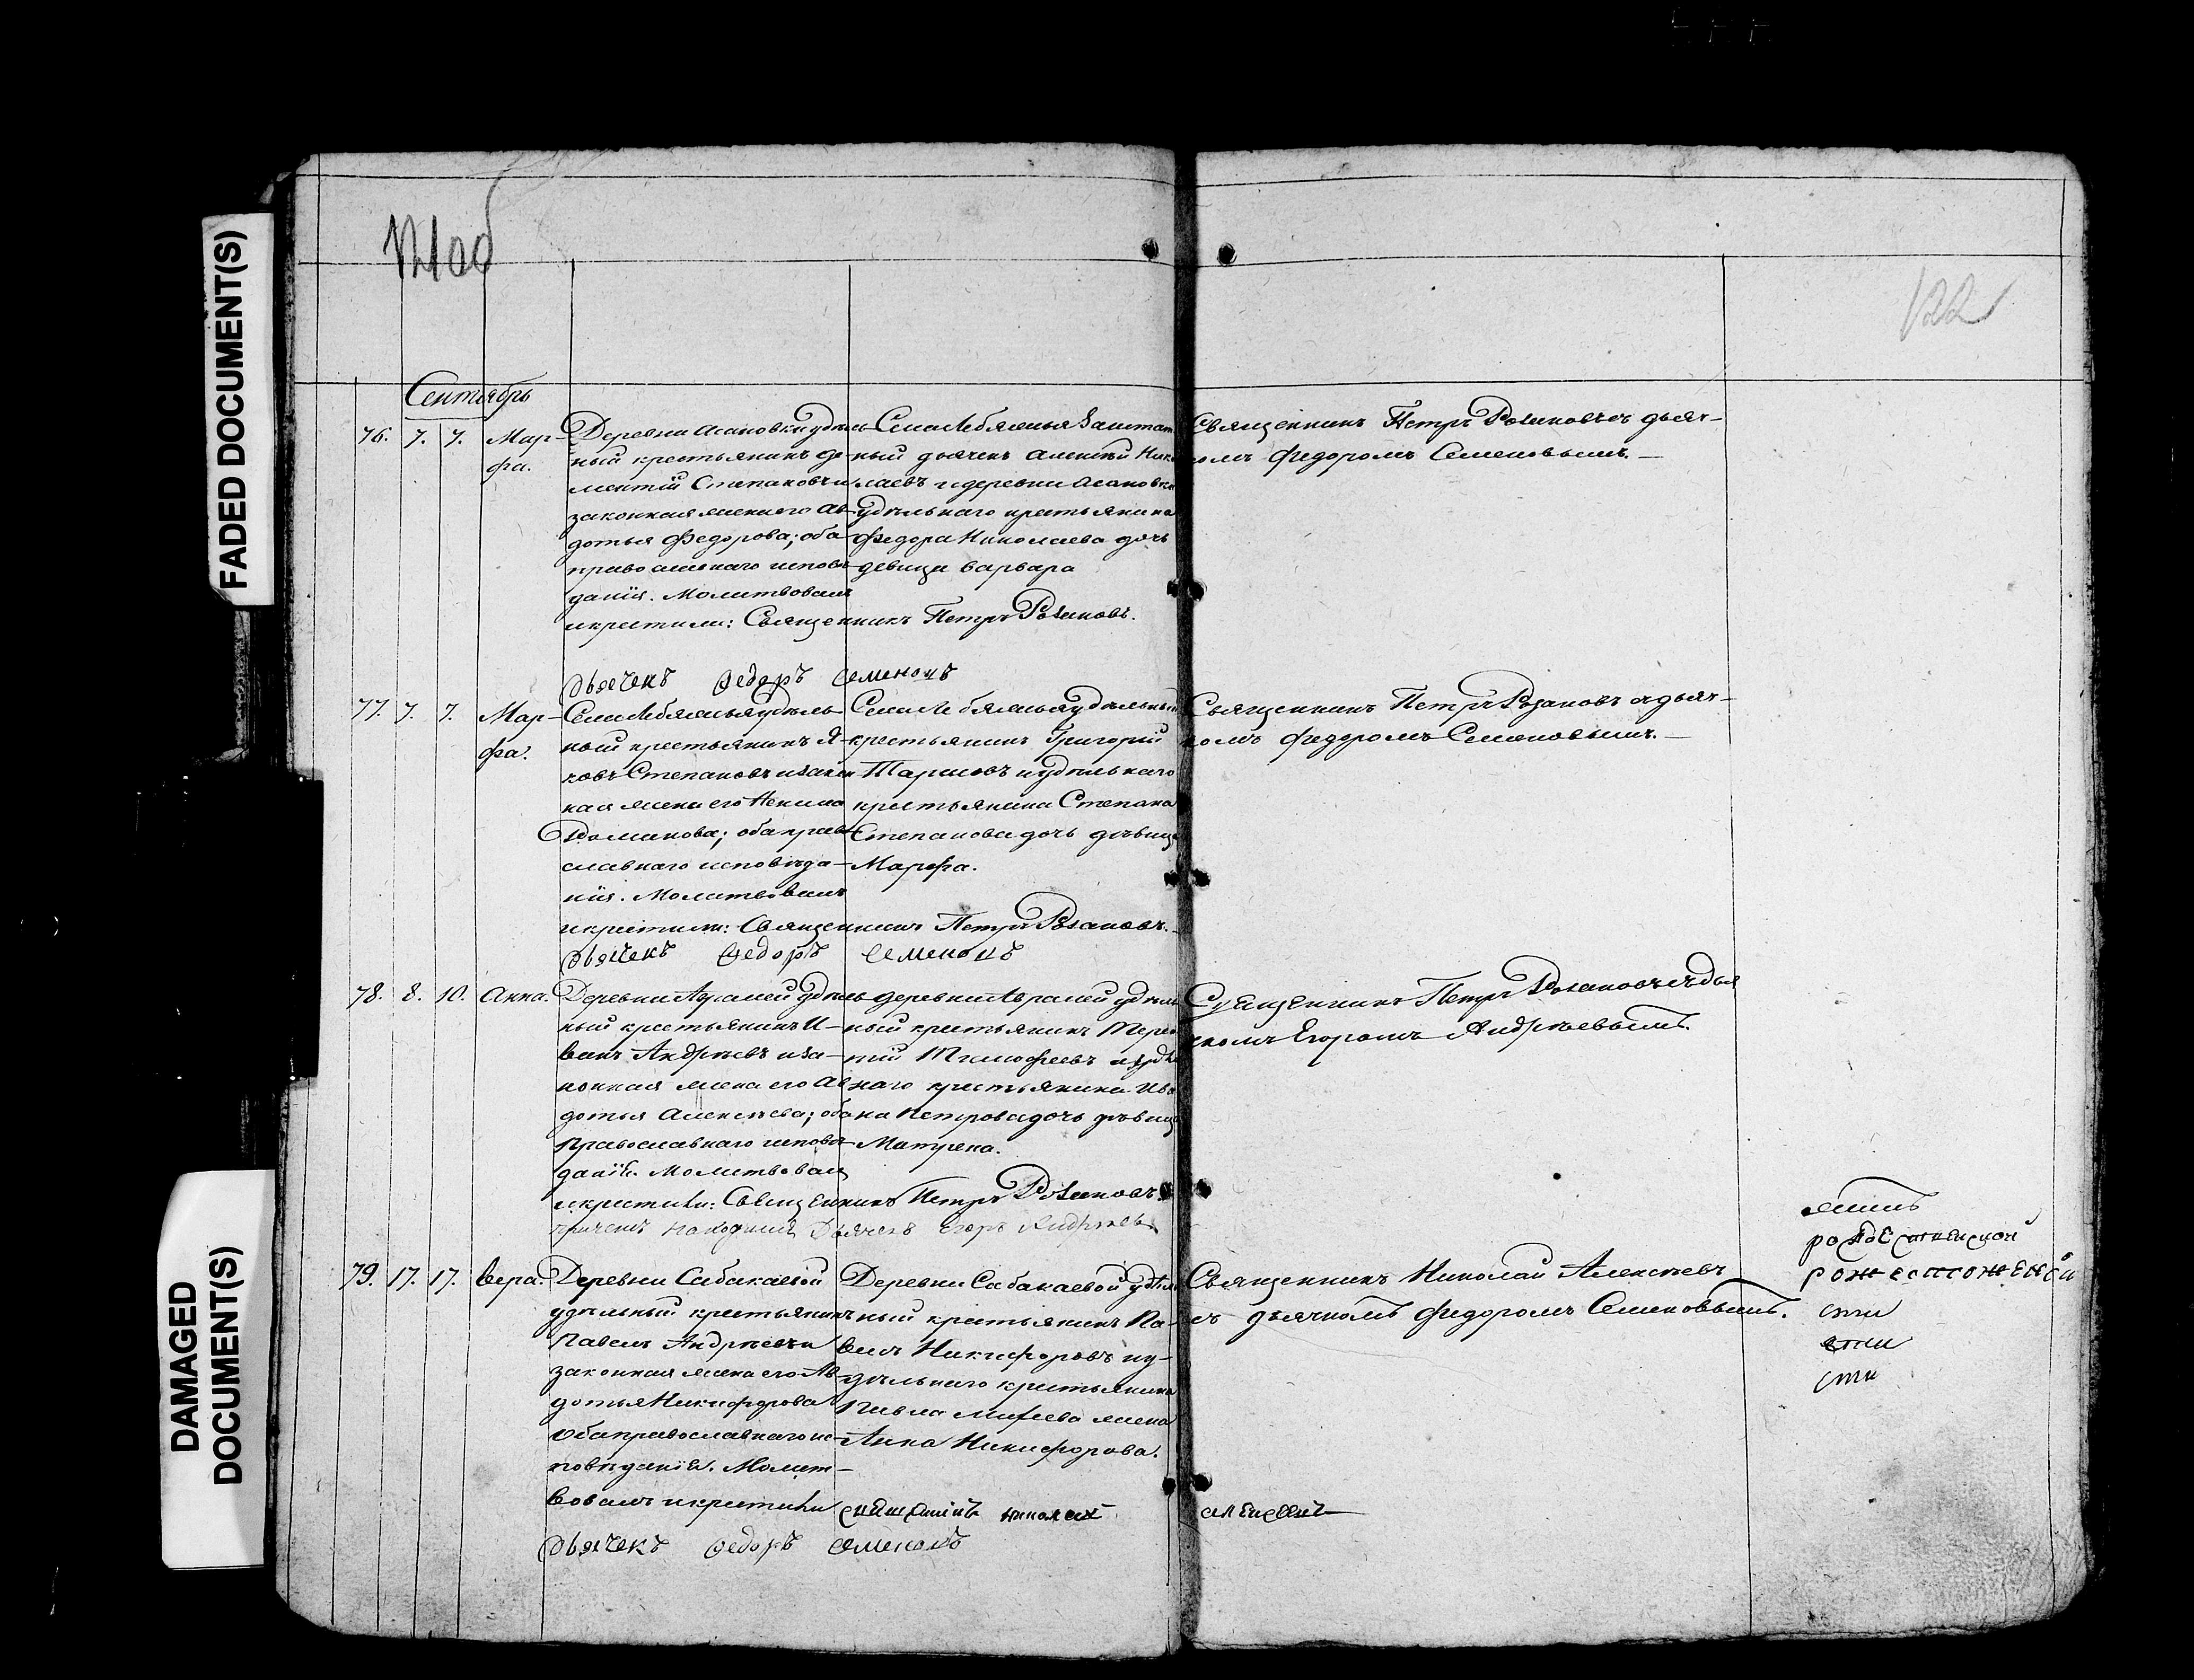 FADED DOCUMENT(S)
DAMAGED
DOCUMENT(S)
122
Сентябрь
76. 7. 7. Мар-
фа.
Деревни Асановки удѣль-
ный крестьянинъ Де-
ментій Степановъ и
законная жена его Ав-
дотья Федорова; оба
православнаго исповѣ-
данія. Молитвовалъ
и крестили: Священникъ Петръ Розановъ.
Дьячекъ Федоръ Семеновъ
Села Лебяжья Заштат
ный дьячекъ Алексѣй Нико
лаевъ и деревни Асановки
удѣльнаго крестьянина
Федора Николаева дочь
девица Варвара
Священникъ Петръ Розановъ съ дьяч-
комъ Федоромъ Семеновымъ.
77. 7. 7. Мар-
фа.
Села Лебяжья удѣль-
ный крестьянинъ Я-
ковъ Степановъ и закон
ная жена его Ненила
Романова; оба право
славнаго исповѣда-
нія. Молитвовалъ
и крестили: Священникъ Петръ Розановъ.
Дьячекъ Федоръ Семеновъ
Села Лебяжья удѣльный
крестьянинъ Григорій
Тарасовъ и удѣльнаго
крестьянина Степана
Степанова дочь дѣвица
Марфа.
Священникъ Петръ Розановъ съ дьяч-
комъ Федоромъ Семеновымъ.
78. 8. 10. Анна.
Деревни Авралей удѣль
ный крестьянинъ И-
ванъ Андрѣевъ и за-
конная жена его Ав
дотья Алексѣева; оба
Православнаго исповѣ-
данія. Молитвовалъ
и крестили: Священникъ Петръ Розановъ.
причемъ находился Дьячекъ Егоръ Андрѣевъ
деревни Авралей удѣль
ный крестьянинъ Терен
тій Тимофеевъ и удѣль
наго крестьянина Ива
на Петрова дочь дѣвица
Матрена.
Священникъ Петръ Розановъ съ дья
чкомъ Егоромъ Андрѣевымъ.
79. 17. 17. Вера.
Деревни Сабакаевой
удѣльный крестьянинъ
Павелъ Андрѣевъ и
законная жена его Ав
дотья Никифорова
Оба православнаго ис-
повѣданія. Молит-
вовалъ и крестили Священникъ Николай Алексеевъ
Дьячекъ Федоръ Семеновъ
Деревни Сабакаевой удѣль
ный крестьянинъ Па-
велъ Никифоровъ и у-
дѣльнаго крестьянина
Павла Михеева жена
Анна Никифорова.
Священникъ Николай Алексѣевъ
съ дьячкомъ Федоромъ Семеновымъ.
сти
сти
сти